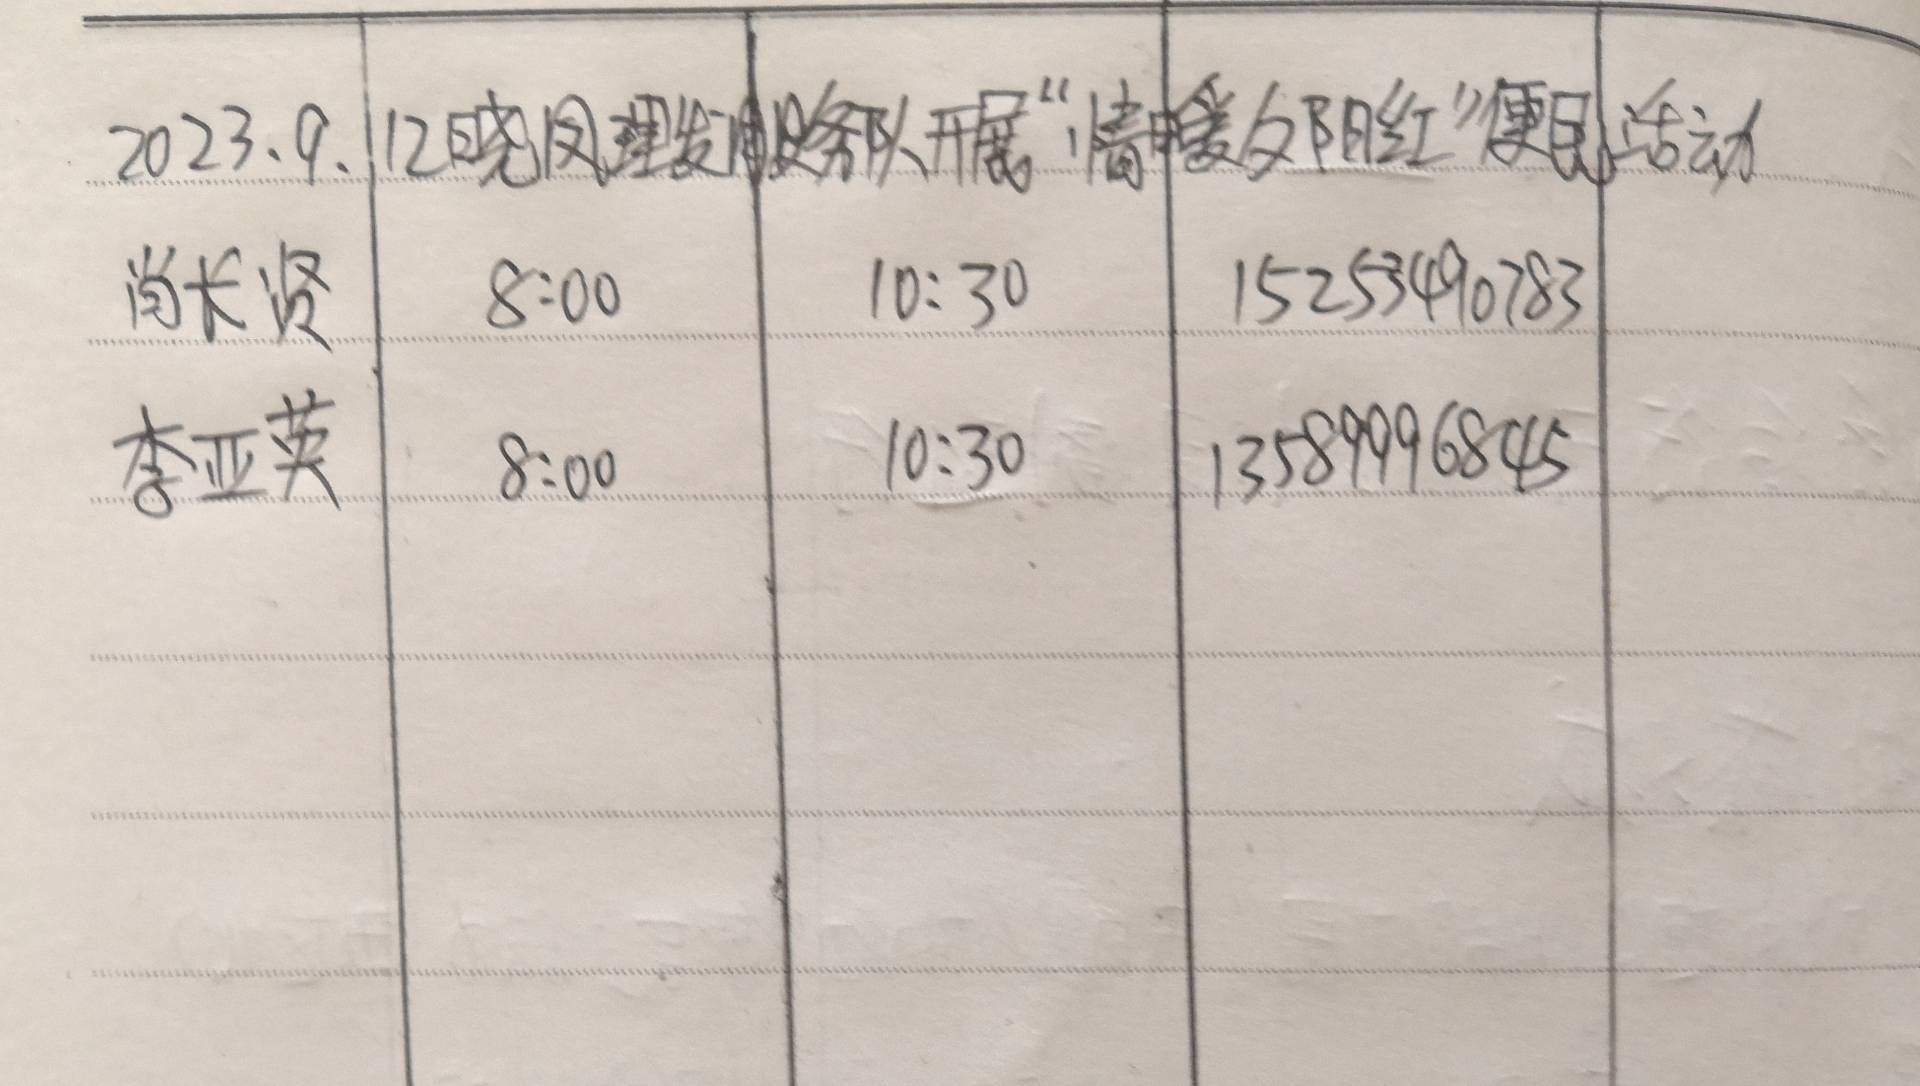 2023.9.12日晓凤理发服务队开展“情暖夕阳红”便民活动
尚长贤 8:00 10:30 15253490783
李亚英 8:00 10:30 13589996845